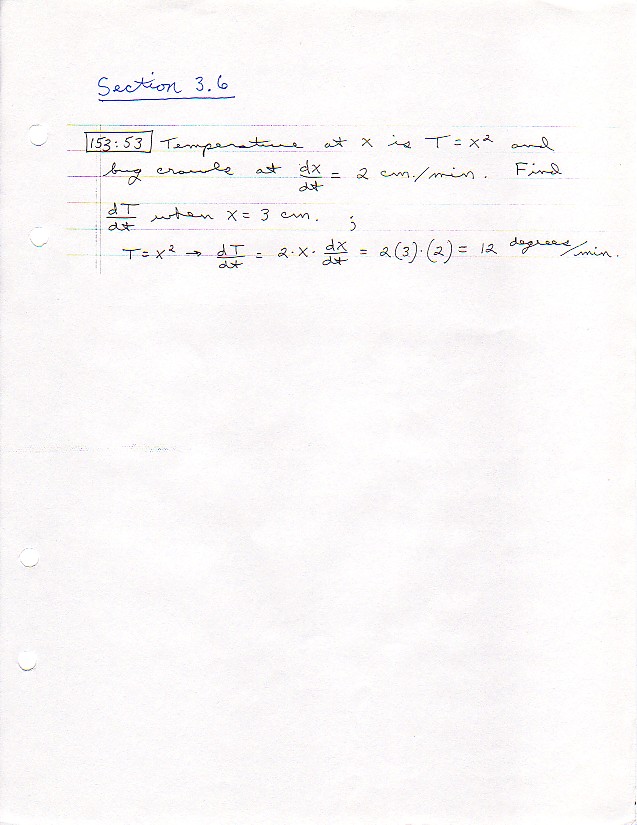 Section 3.6
153:53 Temperature at x is T = x² and
bug crawls at dx/dt = 2 cm./min. Find
dT/dt when x = 3 cm. ;
T = x² → dT/dt = 2·x·dx/dt = 2(3)·(2) = 12 degrees/min.